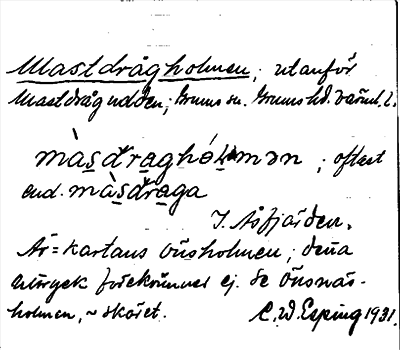 Mastdrågholmen; utanför
Mastdråg udden; Grums sn. Grums hd. Värml. l.
màs̲đra̲ghó mən ; oftast
end. màs̲đra̲ga
I. Åsfjärden.
Är = kartans Önsholmen; detta
uttryck förekommer ej. Se Önsnäs-
holmen, ~ skäret. C.W. Esping 1931.